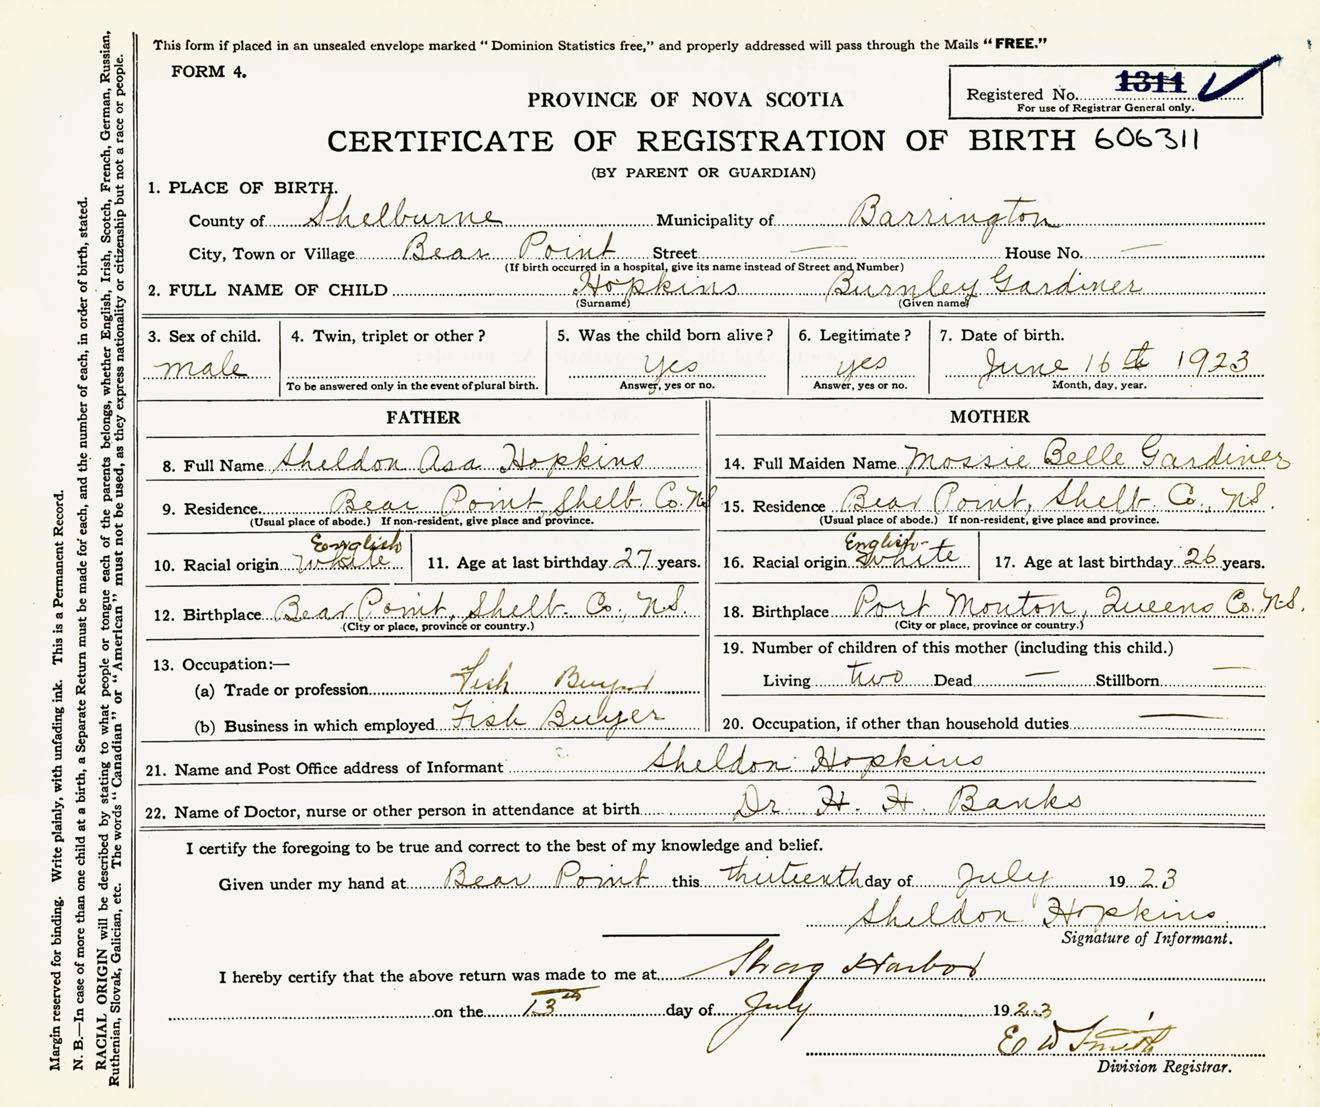 This form if placed in an unsealed envelope marked "Dominion Statistics free," and properly addressed will pass through the Mails "FREE."
FORM 4.
Registered No. 1311
For use of Registrar General only.
PROVINCE OF NOVA SCOTIA
CERTIFICATE OF REGISTRATION OF BIRTH 606311
(BY PARENT OR GUARDIAN)
1. PLACE OF BIRTH.
County of Shelburne Municipality of Barrington
City, Town or Village Bear Point Street — House No. —
(If birth occurred in a hospital, give its name instead of Street and Number)
2. FULL NAME OF CHILD Hopkins Burnley Gardiner
(Surname) (Given name)
3. Sex of child. 4. Twin, triplet or other? 5. Was the child born alive? 6. Legitimate? 7. Date of birth.
male yes yes June 16th 1923
To be answered only in the event of plural birth. Answer, yes or no. Answer, yes or no. Month, day, year.
FATHER
8. Full Name Sheldon Asa Hopkins
9. Residence Bear Point, Shelb. Co. NS
(Usual place of abode.) If non-resident, give place and province.
English
10. Racial origin White 11. Age at last birthday 27 years.
12. Birthplace Bear Point, Shelb. Co., NS.
(City or place, province or country.)
13. Occupation:—
(a) Trade or profession Fish Buyer
(b) Business in which employed Fish Buyer
MOTHER
14. Full Maiden Name Mossie Belle Gardiner
15. Residence Bear Point, Shelb. Co., NS.
(Usual place of abode.) If non-resident, give place and province.
English
16. Racial origin White 17. Age at last birthday 26 years.
18. Birthplace Port Mouton, Queens Co. N.S.
(City or place, province or country.)
19. Number of children of this mother (including this child.)
Living two Dead — Stillborn —
20. Occupation, if other than household duties —
21. Name and Post Office address of Informant Sheldon Hopkins
22. Name of Doctor, nurse or other person in attendance at birth Dr. H. H. Banks
I certify the foregoing to be true and correct to the best of my knowledge and belief.
Given under my hand at Bear Point this thirteenth day of July 1923
Sheldon Hopkins
Signature of Informant.
I hereby certify that the above return was made to me at Shag Harbor
on the 13th day of July 1923
E W Smith
Division Registrar.
Margin reserved for binding. Write plainly, with unfading ink. This is a Permanent Record.
N. B.—In case of more than one child at a birth, a Separate Return must be made for each, and the number of each, in order of birth, stated.
RACIAL ORIGIN will be described by stating to what people or tongue each of the parents belongs, whether English, Irish, Scotch, French, German, Russian,
Ruthenian, Slovak, Galician, etc. The words "Canadian" or "American" must not be used, as they express nationality or citizenship but not a race or people.